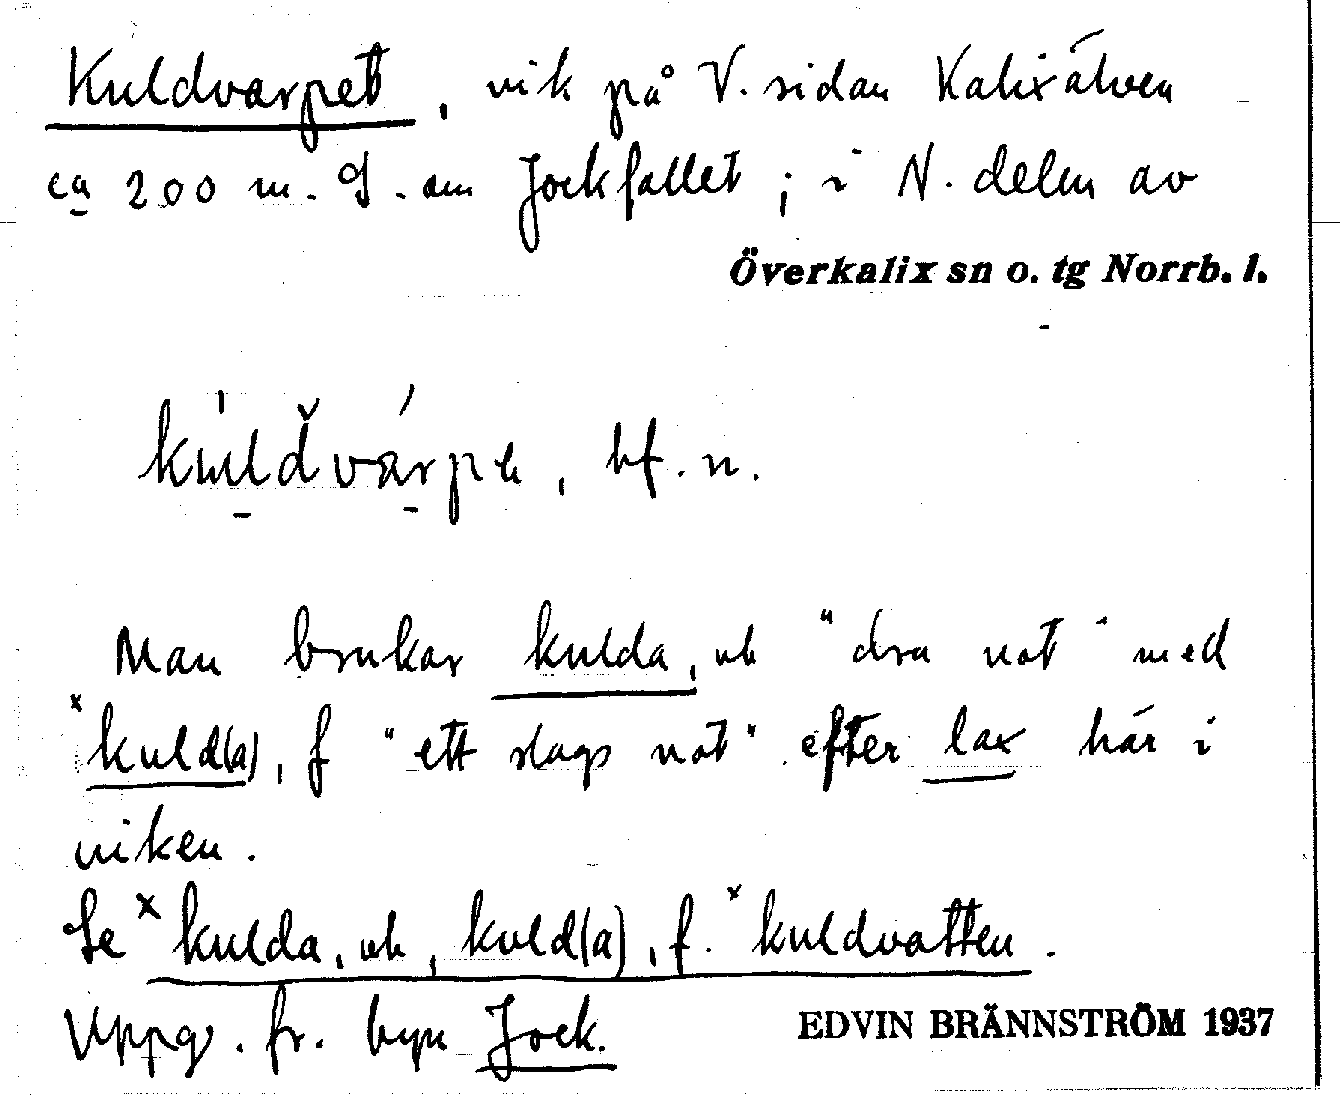 Kuldvarpet, vik på V. sidan Kalixälven
ca 200 m. S. om Jockfallet; i N. delen av
Överkalix sn o. tg Norrb. l.
kuldvarpe, bf. n.
Man brukar kulda, vb "dra not" med
×kuld(a), f "ett slags not" efter lax här i
viken.
Se ×kulda, vb, kuld(a), f. ×kuldvatten.
Uppg. fr. byn Jock.
EDVIN BRÄNNSTRÖM 1937